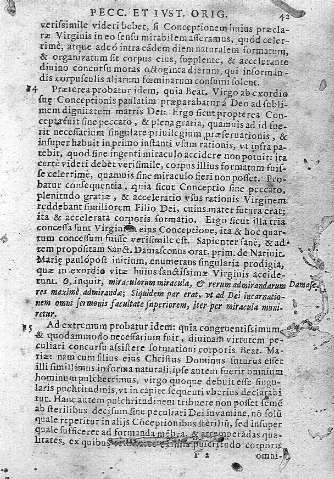 PECC. ET IVST. ORIG. 42
verisimile videri debet, si Conceptionem huius præcla-
ræ Virginis in eo sensu mirabilem asseramus, quòd celer-
rimè, atque adeò intra eàdem diem naturalem formatum,
& organizatum sit corpus eius, supplente, & accelerante
diuino concursu moras octoginta dierum, qui informan-
dis corpusculis aliarum fœminarum consumi solent.
34 Præterea probatur idem, quia Beat. Virgo ab exordio
suę Conceptionis paulatim præparabatur à Deo ad subli-
mem dignitatem matris Dei. Ergo sicut propterea Con-
cepta fuit sine peccato, & plena gratia, quamuis ad id fue-
rit necessarium singulare priuilegium præseruationis, &
insuper habuit in primo instanti vsum rationis, vt infra pa-
tebit, quod sine ingenti miraculo accidere non potuit: ita
certè videri debet verisimile, corpus illius formatum fuis-
se celerrimè, quamuis sine miraculo fieri non posset. Pro-
batur consequentia, quia sicut Conceptio sine peccato,
plenitudo gratiæ, & acceleratio vsus rationis Virginem
reddebant similiorem Filio Dei, cuius mater futura erat;
ita & accelerata corporis formatio. Ergo sicut illa tria
concessa sunt Virginis in eius Conceptione, ita & hoc quar-
tum concessum fuisse verisimile est. Sapienter sanè, & ad
rem propositam Sanct. Damascenus orat. prim. de Natiuit.
Mariæ paulopost initium, enumerans singularia prodigia,
quæ in exordio vitæ huius sanctissimæ Virginis accide-
runt. O, inquit, miraculorum miracula, & rerum admirandarum Damasc.
res maximè admiranda; Siquidem par erat, vt ad Dei incarnatio-
nem omni sermonis facultate superiorem, iter per miracula muni-
retur.
35 Ad extremum probatur idem: quia congruentissimum,
& quodammodo necessarium fuit, diuinam virtutem pe-
culiari concursu assistere formationi corporis Beat. Ma-
riæ: nam cum filius eius Christus Dominus futurus esset
illi simillimus in forma naturali, ipse autem fuerit omnium
hominum pulcherrimus, virgo quoque debuit esse singu-
laris pulchritudinis, vt in capite sequenti vberius declarabi
tur. Hanc autem pulchritudinem tribuere non posset semē
ab sterilibus decisum sine peculiari Dei iuuamine, nō solū
quale reperitur in alijs Conceptionibus sterilíū, sed insuper
quale sufficeret ad formanda mēbra, & attemperadas qua-
litates, ex quibus pulcritudo corporis
F 2 omni-